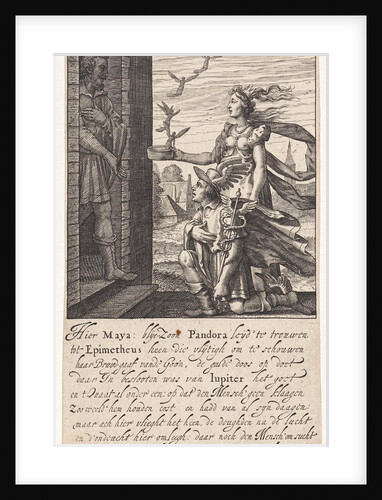 Hier Maya: blye Zoon Pandora leyd te trouwen
tot Epimetheus heen die vlytigh om te schouwen
haar Bruyd-gaaf vande Goon, de gulde doos op doet
daar In beslooten was van Iupiter het goet
en t quaat al onder een: op dat den Mensch geen klaagen
Zoo weeld hem houden cost en hadd van al syn daagen
maar ach hier vlieght het heen, de deughden na de lucht
en d'ondeucht hier omleegh: daar noch den Mensch om sucht